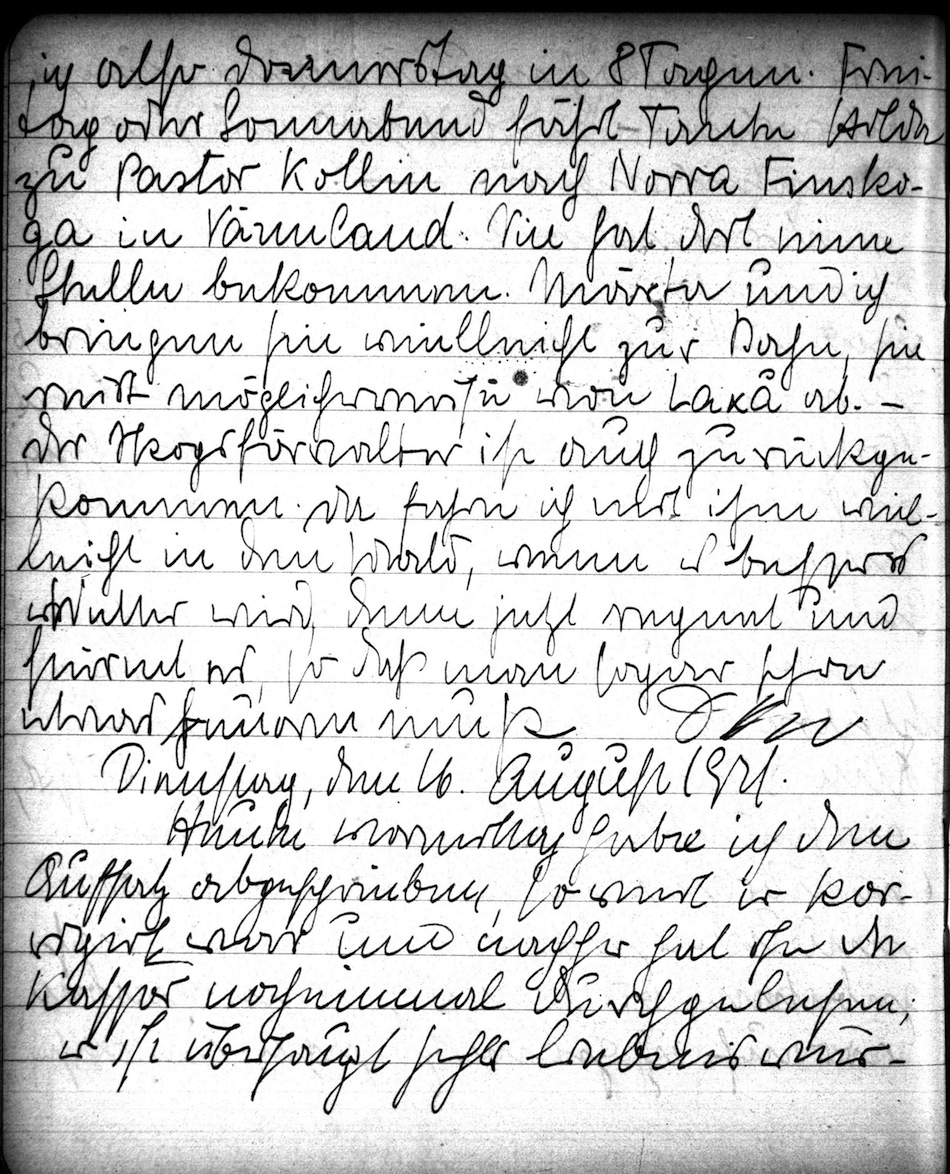 ich also Donnerstag in 8 Tagen. Frei-
tag oder Sonnabend fährt Tante Hilda
zu Pastor Kollin nach Norra Finsko-
ga in Värmland. Sie hat dort eine
Stelle bekommen. und ich
bringen sie vielleicht zur Bahn, sie
reist möglicherweise von Laxå ab. –
Der Skogsförvalter ist auch zurückge-
kommen. Da fahre ich mit ihm viel-
leicht in den Wald, wenn es besseres
Wetter wird, denn jetzt regnet und
stürmt es, so daß man sogar schon
etwas feuern muß.
Dienstag, den 16. August 1921.
Heute vormittag habe ich den
Aufsatz abgeschrieben, soweit er kor-
rigirt war und nachher hat ihn der
Kasper nocheinmal durchgelesen;
er ist überhaupt sehr liebenswür-